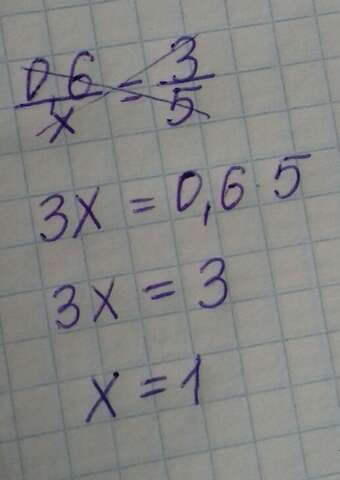 0 6 / x = 3 / 5
3x = 0,6 · 5
3x = 3
x = 1